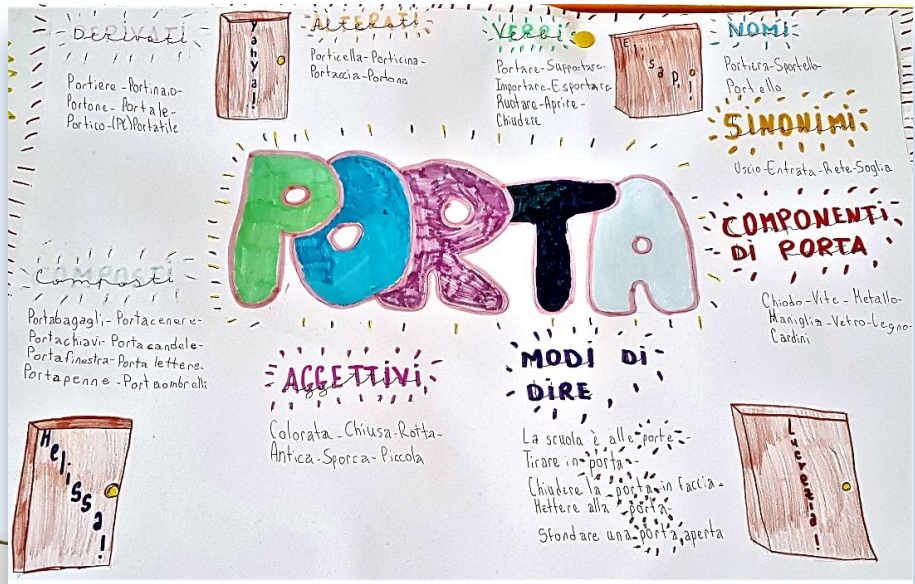 DERIVATI
Portiere-Portinaio-
Portone-Portale-
Portico-(PC)Portatile
yahya!
ALTERATI
Porticella-Porticina-
Portaccia-Portona
VERBI
Portare-Supportare-
Importare-Esportare
Ruotare-Aprire-
Chiudere
NOMI
Portiera-Sportello
Portello
SINONIMI
Uscio-Entrata-Rete-Soglia
PORTA
COMPONENTI
DI PORTA
Chiodo-Vite-Metallo-
Maniglia-Vetro-Legno-
Cardini
Composti
Portabagagli-Portacenere-
Portachiavi-Portacandele-
Portafinestra-Porta lettere-
Portapenne-Portaombrelli
AGGETTIVI
Colorata-Chiusa-Rotta-
Antica-Sporca-Piccola
MODI DI
DIRE
La scuola è alle porte-
Tirare in porta-
Chiudere la porta in faccia-
Mettere alla porta-
Sfondare una porta aperta
Melissa!
Lucrezia!